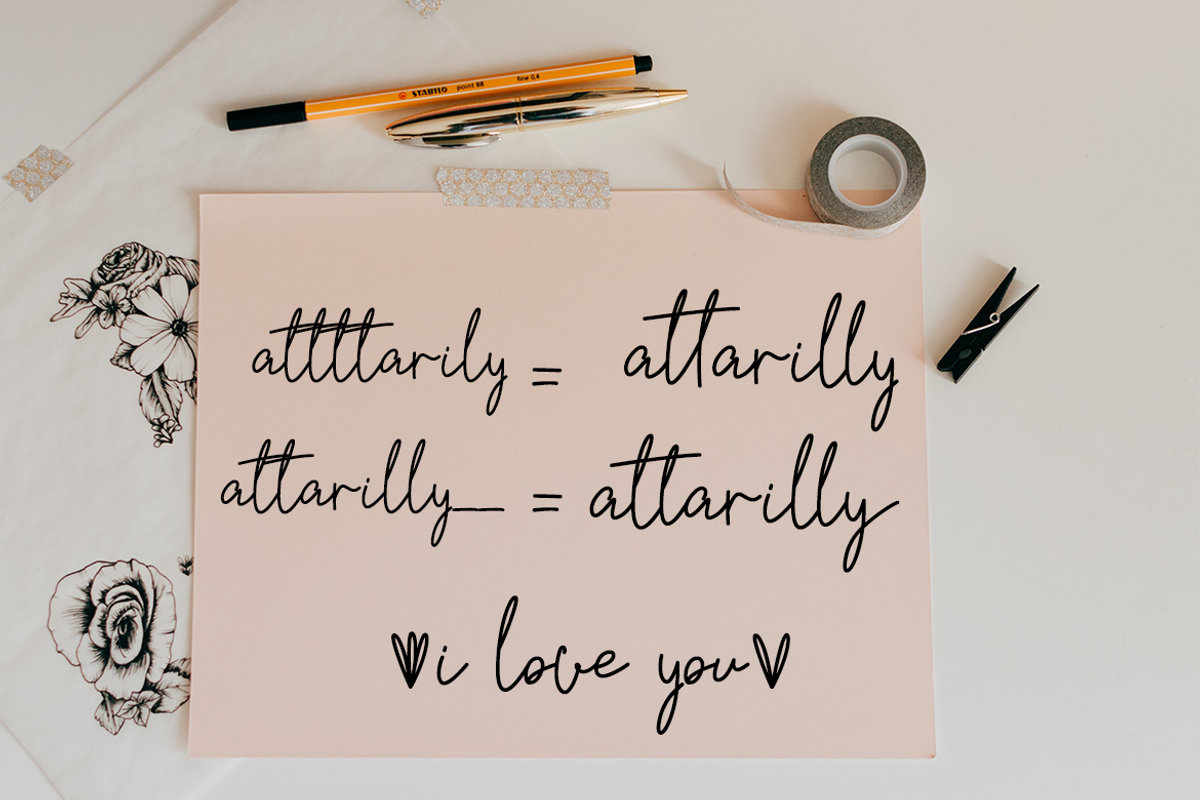 STABILO point 88 fine 0,4
attttarily = attarilly
attarilly_ = attarilly
i love you